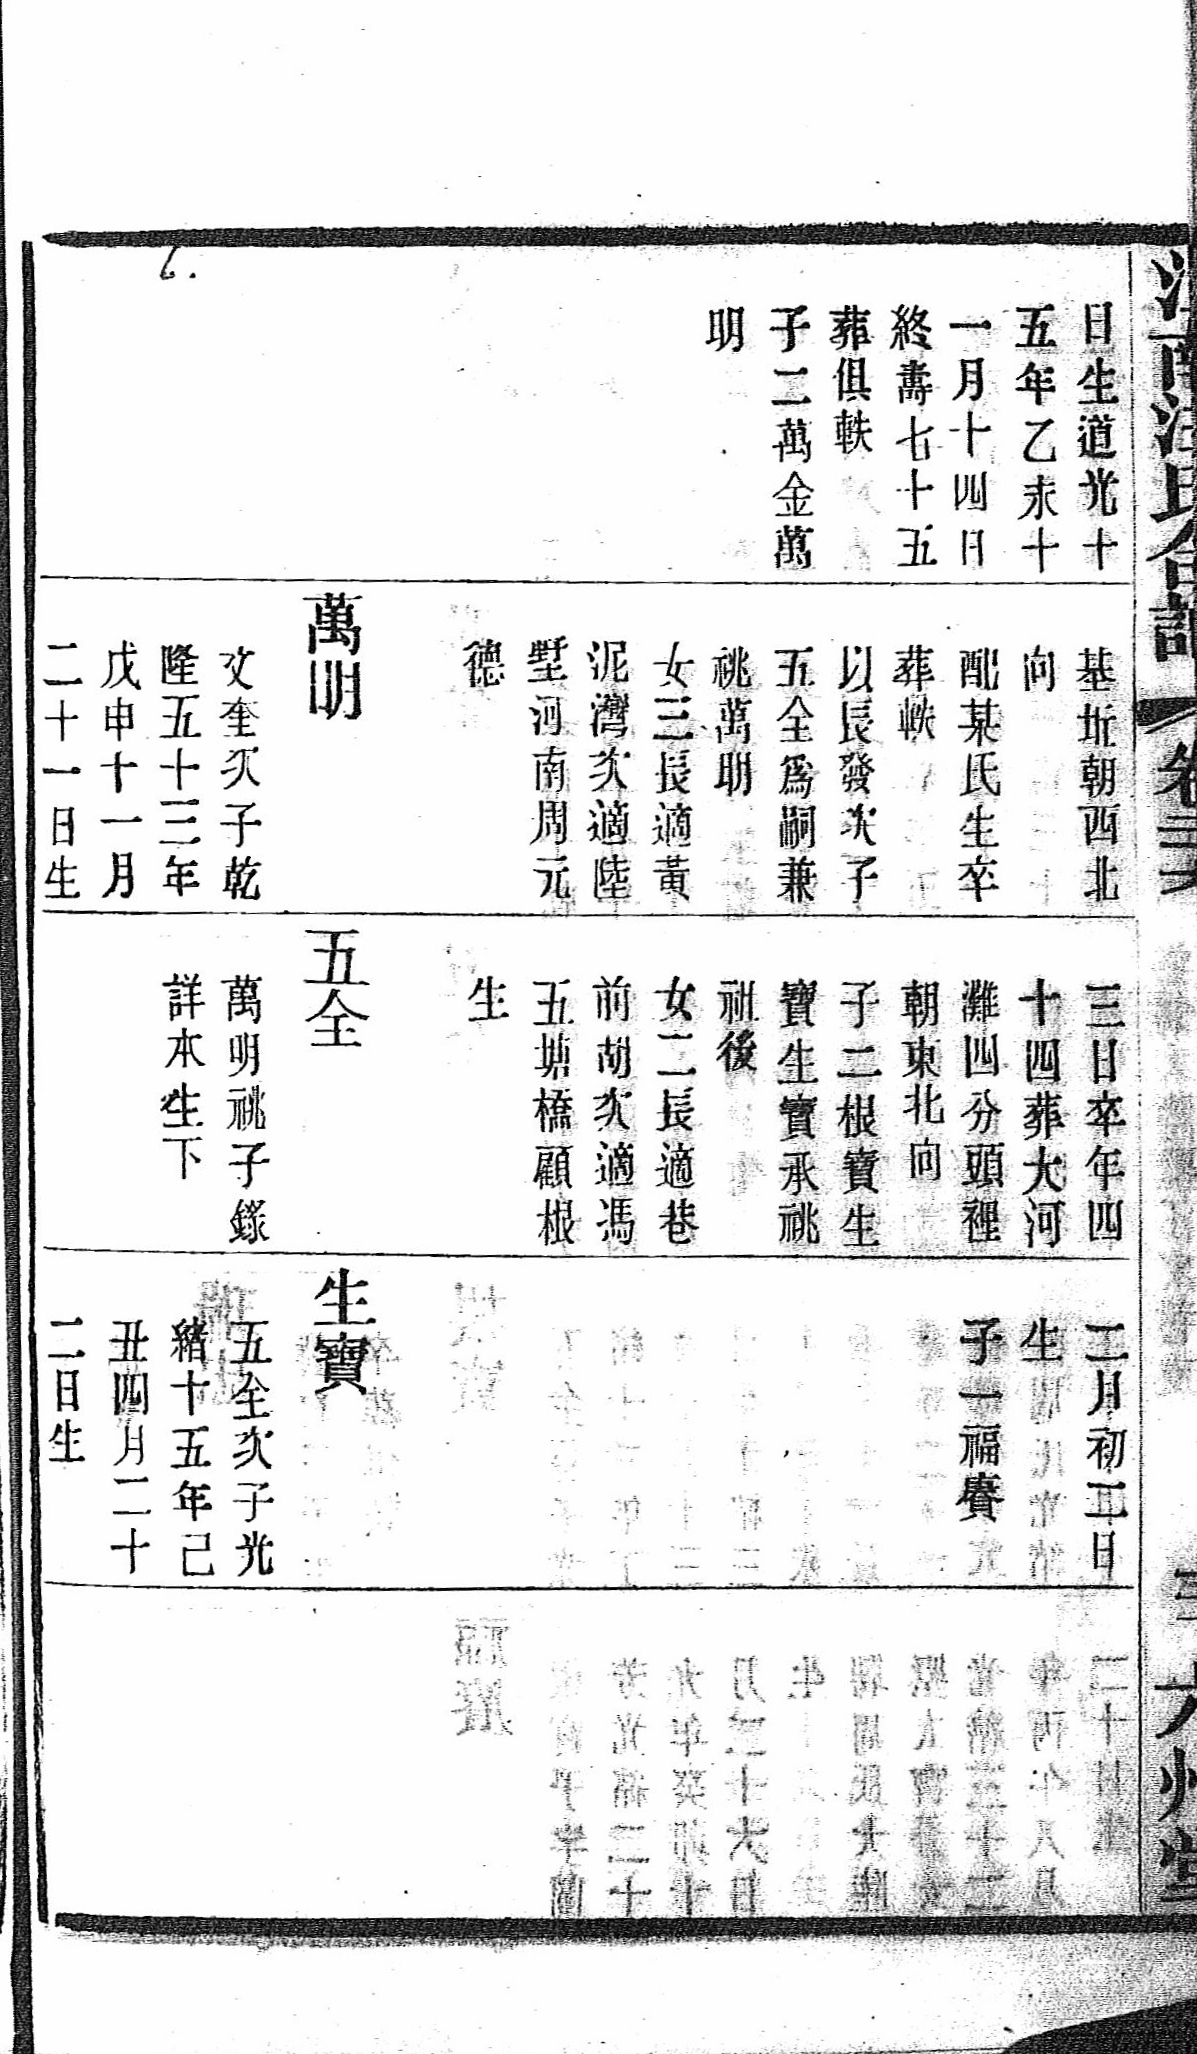 日生道光十
五年乙未十
一月十四日
終壽七十五
葬俱軼
子二萬金萬
明
基坵朝西北
向
配某氏生卒
葬軼
以長發次子
五全爲嗣兼
祧萬明
女三長適黃
泥灣次適陸
墅河南周元
德
萬明
文奎次子乾
隆五十三年
戊申十一月
二十一日生
三日卒年四
十四葬大河
灘四分頭裡
朝東北向
子二根寶生
寶生寶承祧
祖後
女二長適巷
前胡次適馮
五塘橋顧根
生
五全
萬明祧子錄
詳本生下
二月初二日
生
子一福賡
生寶
五全次子光
緒十五年己
丑四月二十
二日生